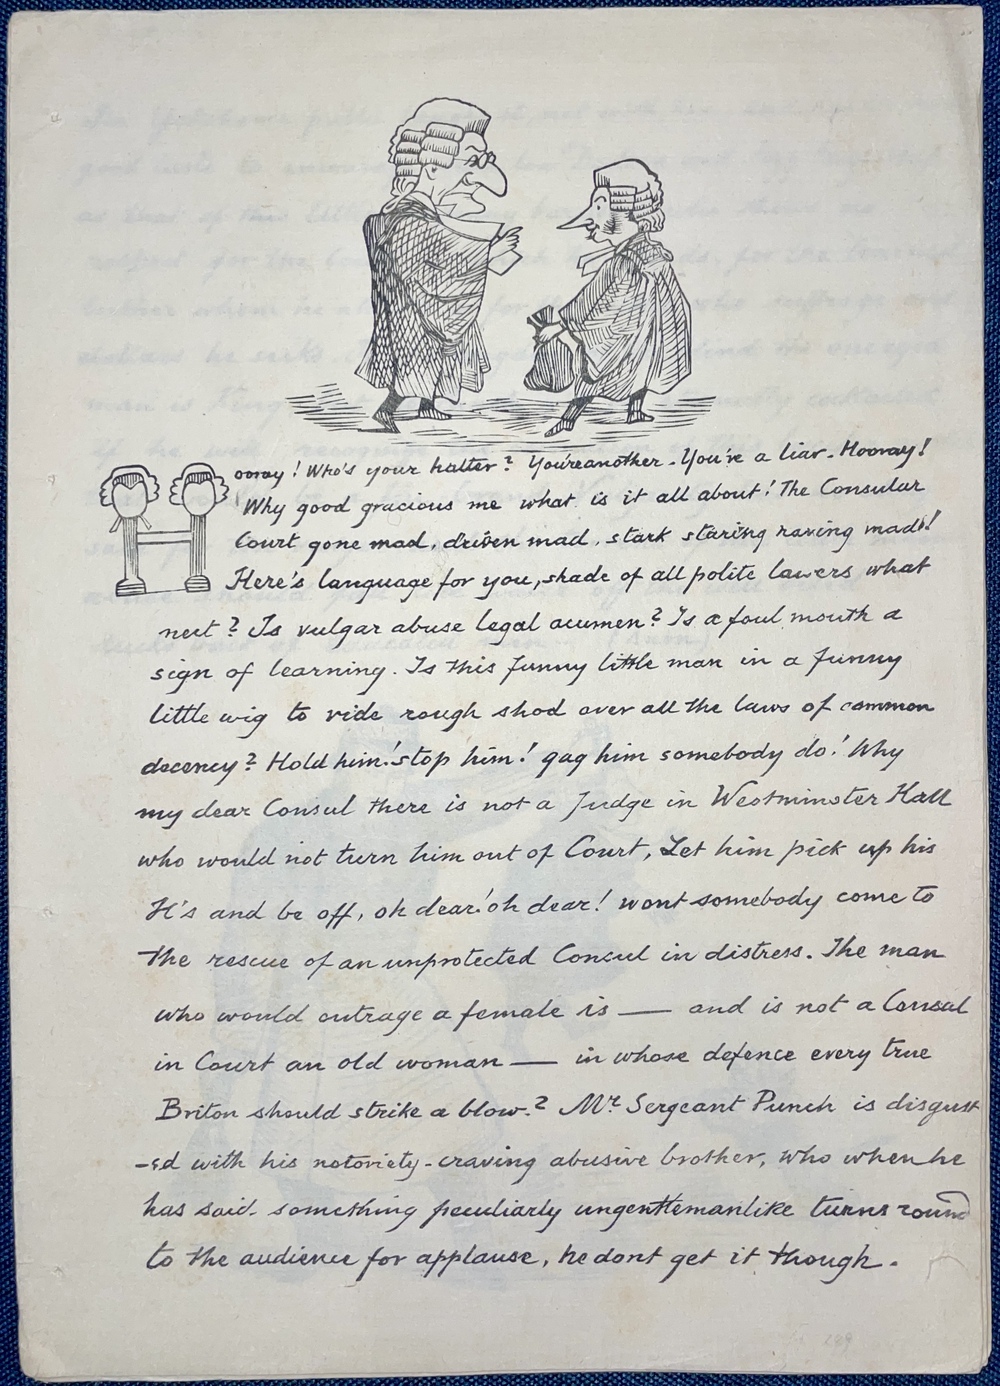 Hooray! Who's your hatter? You'reanother. You're a liar. Hooray!
Why good gracious me what is it all about! The Consular
Court gone mad, driven mad, stark staring raving mad!!
Here's language for you, shade of all polite lawers what
next? Is vulgar abuse legal acumen? Is a foul mouth a
sign of learning. Is this funny little man in a funny
little wig to ride rough shod over all the laws of common
decency? Hold him! stop him! gag him somebody do! Why
my dear Consul there is not a Judge in Westminster Hall
who would not turn him out of Court, Let him pick up his
H's and be off, oh dear! oh dear! wont somebody come to
the rescue of an unprotected Consul in distress. The man
who would outrage a female is — and is not a Consul
in Court an old woman — in whose defence every true
Briton should strike a blow.? Mr. Sergeant Punch is disgust
-ed with his notoriety-craving abusive brother, who when he
has said something peculiarly ungentlemanlike turns round
to the audience for applause, he dont get it though.